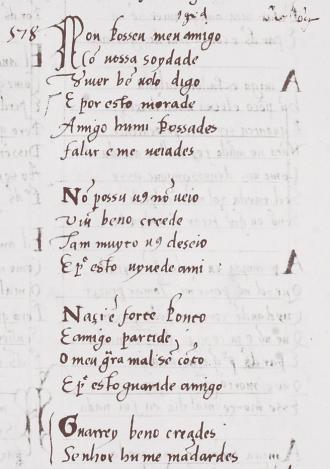 578
Non posseu meu amigo
Cō uossa soydade
Viuer bē uolo digo
E por esto morade
Amigo humi possades
falar e me ueiades
Nō possu u9 nō ueio
Viū beno creede
Tam muyto u9 deseio
E pʳ esto uyuede ami
Naçi ē forte ponto
E amigo partide
O meu gra mal sē cōto
E pʳ esto guaride amigo
Guarrey beno creades
Senhor hu me mādardes